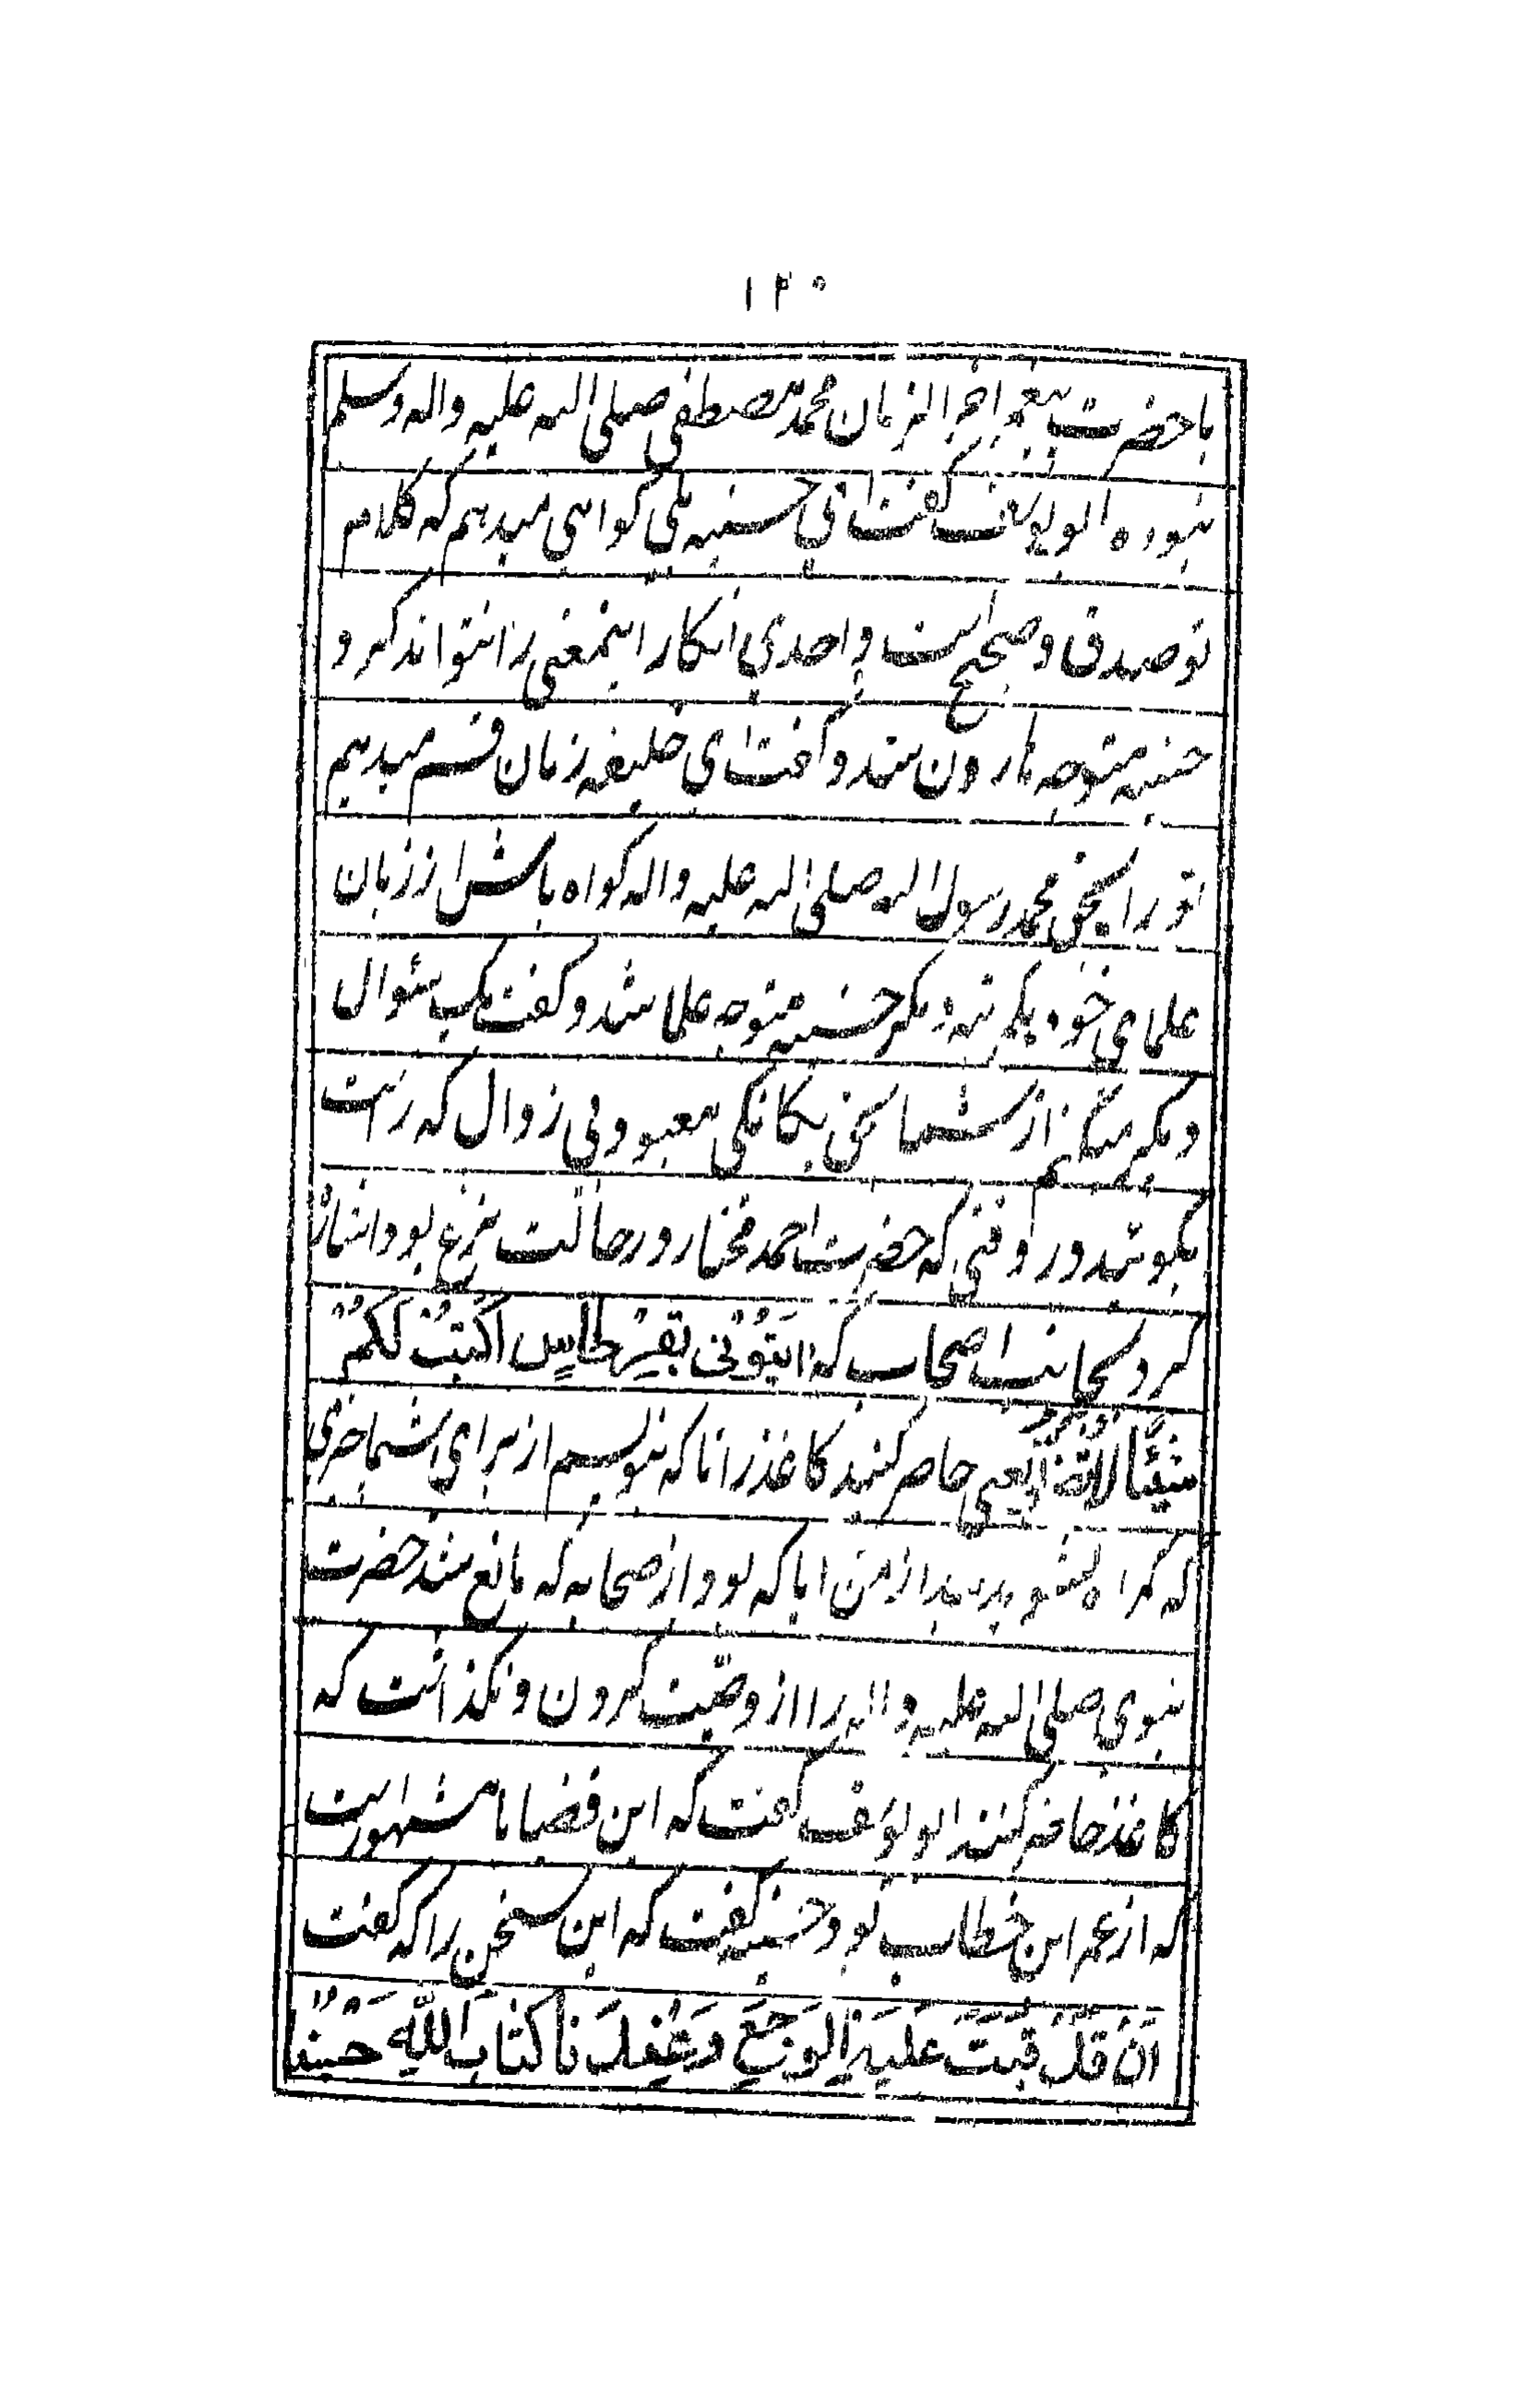 ۱۴۰
با حضرت پیغمبر اخر الزمان محمد مصطفی صلی الله علیه واله وسلم
نبوده ابو یوسف گفت ای حسنیه بلی کواهی میدهم که کلام
تو صدق و صحیح است و احدی انکار اینمعنی را نتواند کرد و
حسنیه متوجه هارون شد و گفت ای خلیفه زمان قسم میدهم
تو را بحق محمد رسول الله صلی الله علیه واله کواه باش از زبان
علمای خود دیگر حسنیه متوجه علما شد و گفت یک سئوال
دیگر میکنم از شما بحق یکانکی معبود بی زوال که راست
بکوئید در وقتی که حضرت احمد مختار در حالت نزع بود واشاره
کرد بجانب اصحاب که ایتونی بقرطاس اکتب لکم
شیئا لا تضلوا یعنی حاضر کنید کاغذ را تا که بنویسم از برای شما چیزی
که گمراه نشوید بعد از من ایا که بود از صحابه که مانع شد حضرت
نبوی صلی الله علیه و اله را از وصیت کردن و نکذاشت که
کاغذ حاضر کنند ابو یوسف گفت که این قضایا مشهور است
که از عمر ابن خطاب بود حسنیه گفت که این سخن را که گفت
ان قد علیه الوجع وعندنا کتاب الله حسبنا